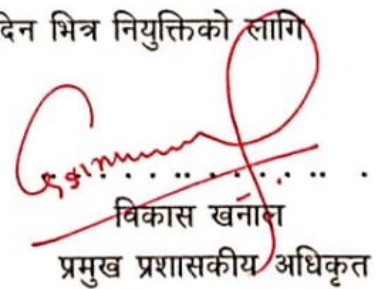 देन भित्र नियुक्तिको लागि
विकास खनाल
प्रमुख प्रशासकीय अधिकृत